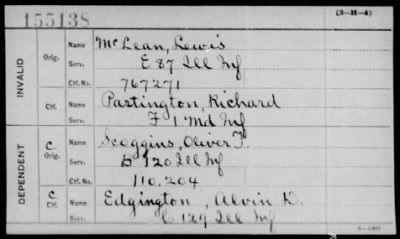 155138
(3-H-4)
INVALID
Orig.
Name McLean, Lewis
Serv. E 87 Ill Inf
Ctf. No. 767271
Ctf.
Name Partington, Richard
Serv. F 1 Md Inf
DEPENDENT
C Orig.
Name Scoggins, Oliver F.
Serv. D 120 Ill Inf
Ctf. No. 110.204
C Ctf.
Name Edgington, Alvin D.
Serv. C 129 Ill Inf